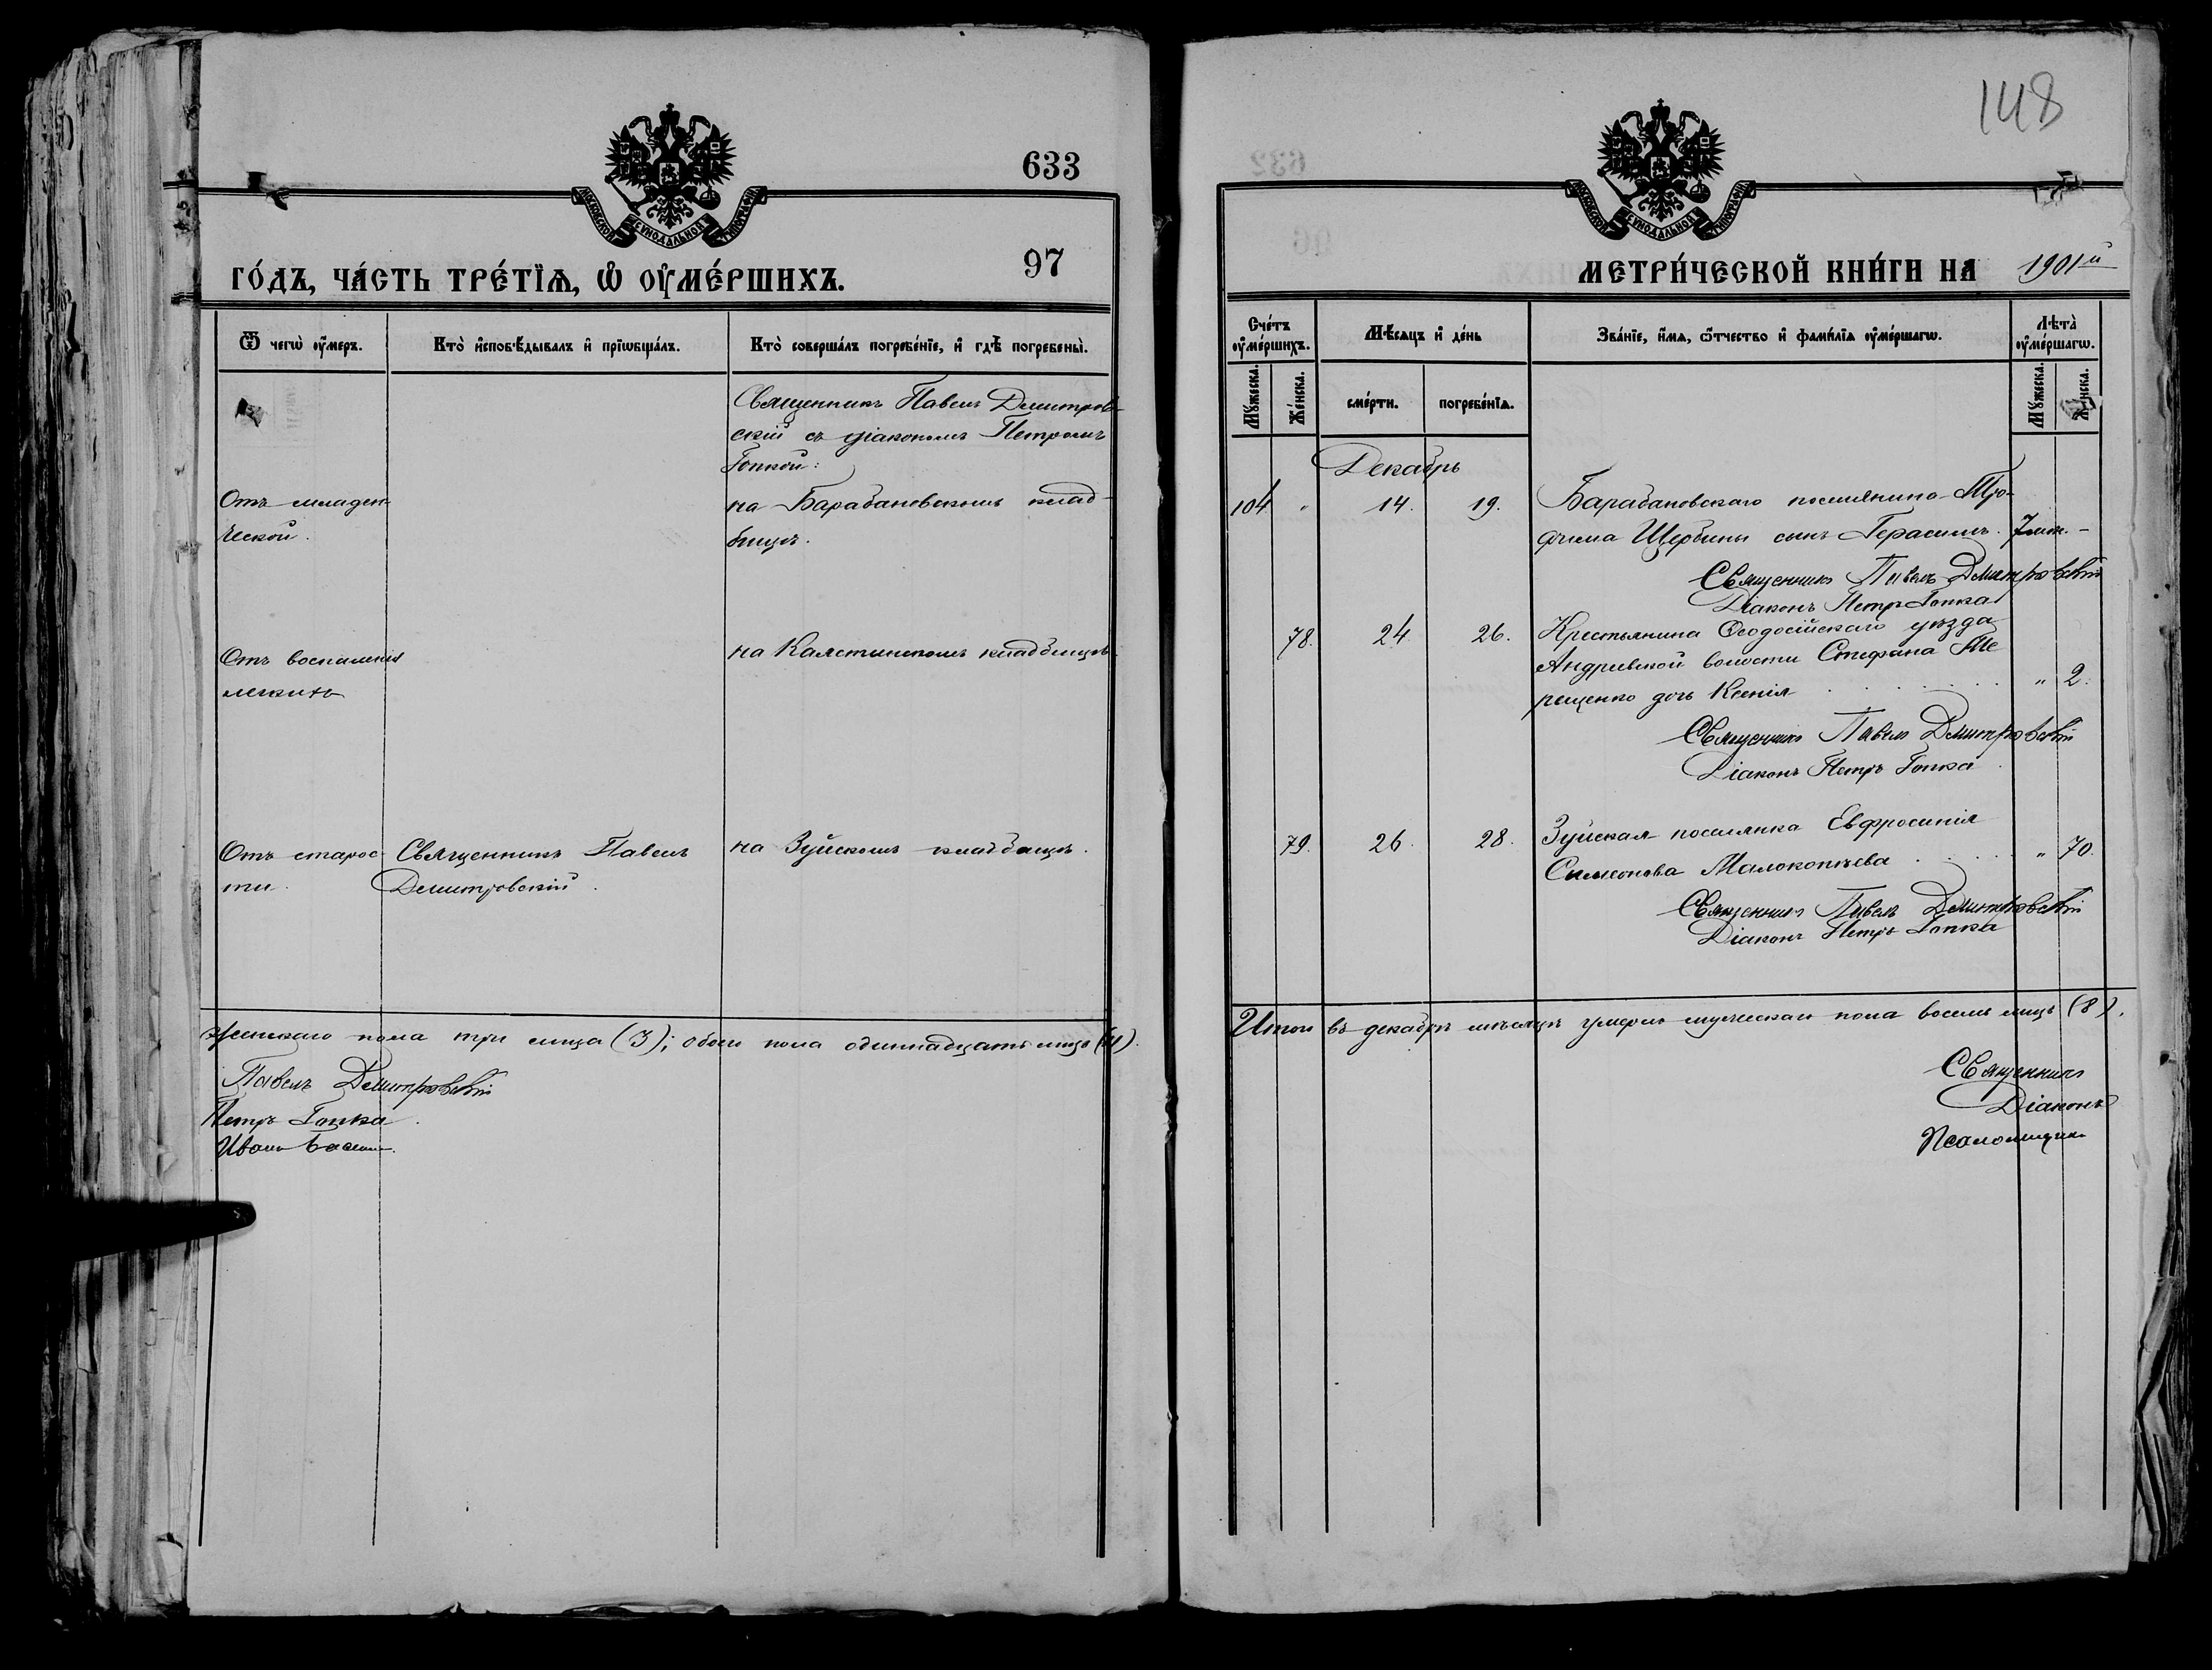 633
97
го́дъ, ча́сть тре́тїѧ, ѡ҆ оу҆ме́ршихъ.
Ѿ чегѡ̀ оу҆́меръ.
Кто̀ и҆сповѣ́дывалъ и҆ прїѡбща́лъ.
Кто̀ соверша́лъ погребе́нїе, и҆ гдѣ̀ погребены̀.
Священникъ Павелъ Димитров-
скій съ діакономъ Петромъ
Гопкой:
Отъ младен-
ческой.
на Барабановскомъ клад-
бищѣ.
Отъ воспаленія
легкихъ
на кладбищѣ.
Отъ старос-
ти.
Священникъ Павелъ
Димитровскій.
на Зуйскомъ кладбищѣ.
женскаго пола три лица (3); обоего пола одиннадцать лицъ (11).
Павелъ Димитровскій
Петръ Гопка
Иванъ
148
МОСКОВСКОЙ СѴНОДАЛЬНОЙ ТИПОГРАФІИ
метри́ческой кни́ги на 1901й
Сче́тъ
оу҆ме́ршихъ.
Мѣ́сяцъ и҆ де́нь
Зва́нїе, и҆́мѧ, ѻ҆́тчество и҆ фами́лїѧ оу҆ме́ршагѡ.
Лѣ́та
оу҆ме́ршагѡ.
Мꙋ́жеска.
Же́нска.
сме́рти.
погребе́нїѧ.
Мꙋ́жеска.
Же́нска.
Декабрь
104 " 14. 19. Барабановскаго поселянина Тро-
фима Щербины сынъ Герасимъ. 7 мѣс. -
Священникъ Павелъ Димитровскій
Діаконъ Петръ Гопка
78. 24 26. Крестьянина Ѳеодосійскаго уѣзда
Андреевской волости Стефана Те-
рещенко дочь Ксенія " 2.
Священникъ Павелъ Димитровскій
Діаконъ Петръ Гопка
79. 26. 28. Зуйская поселянка Евфросинія
Симеонова Малокопчева " 70.
Священникъ Павелъ Димитровскій
Діаконъ Петръ Гопка
Итого въ декабрѣ мѣсяцѣ умерло мужескаго пола восемь лицъ (8).
Священникъ
Діаконъ
Псаломщикъ